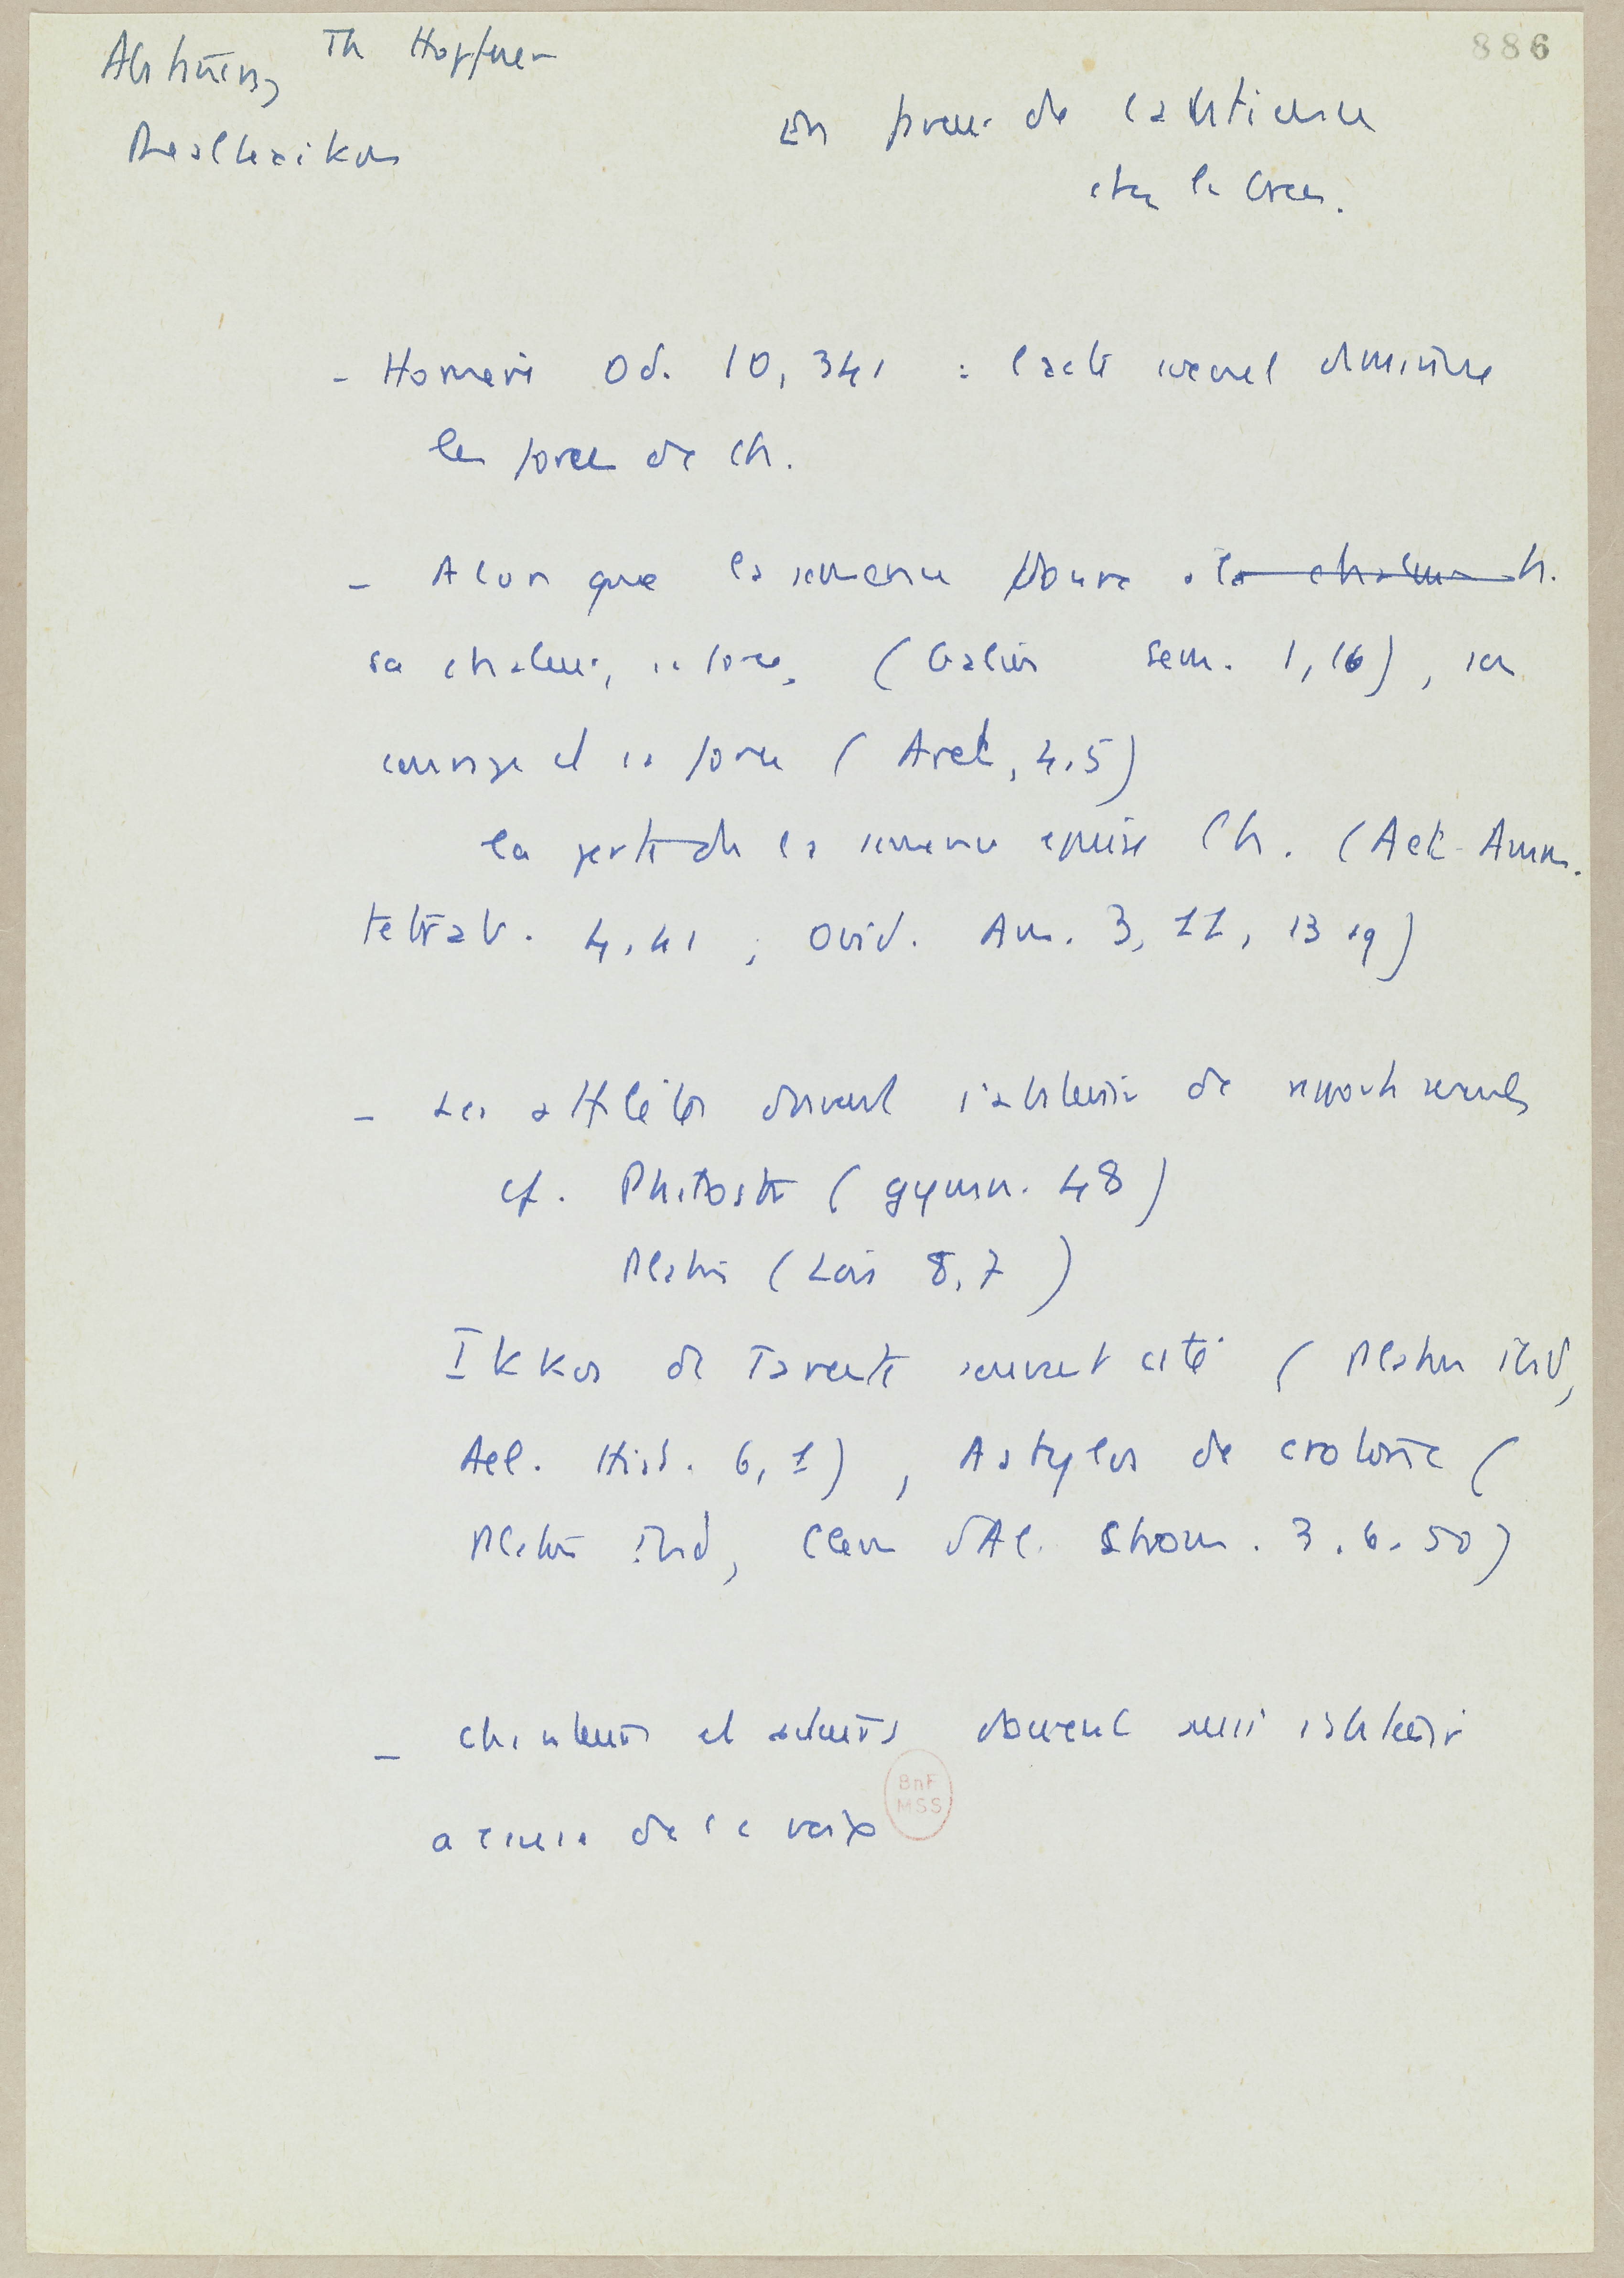 886
Abstinenz, Th Hopfner
Reallexikon
En faveur de l'abstinence
chez les Grecs.
- Homère Od. 10, 341 : l'acte sexuel diminue
les forces de l'h.
- Alors que la semence donne à l'h.
sa chaleur, sa force, (Galien Sem. 1, 16), son
courage et sa force (Aret, 4.5)
la perte de la semence épuise l'h. (Aet. Amm.
tetrab. 4.41 ; Ovid. Am. 3, 11, 13 sq)
- Les athlètes doivent s'abstenir de rapports sexuels
cf. Philostr (gymn. 48)
Platon (Lois 8, 7)
Ikkos de Tarente souvent cité (Platon ibid,
Ael. Hist. 6, 1), Astylos de Crotone (
Platon ibid, Clem d'Al. Strom. 3.6.50)
- chanteurs et acteurs doivent aussi s'abstenir
à cause de la voix
BnF
MSS